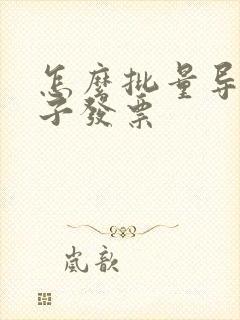 怎麽批量导
子發票
嵐歆